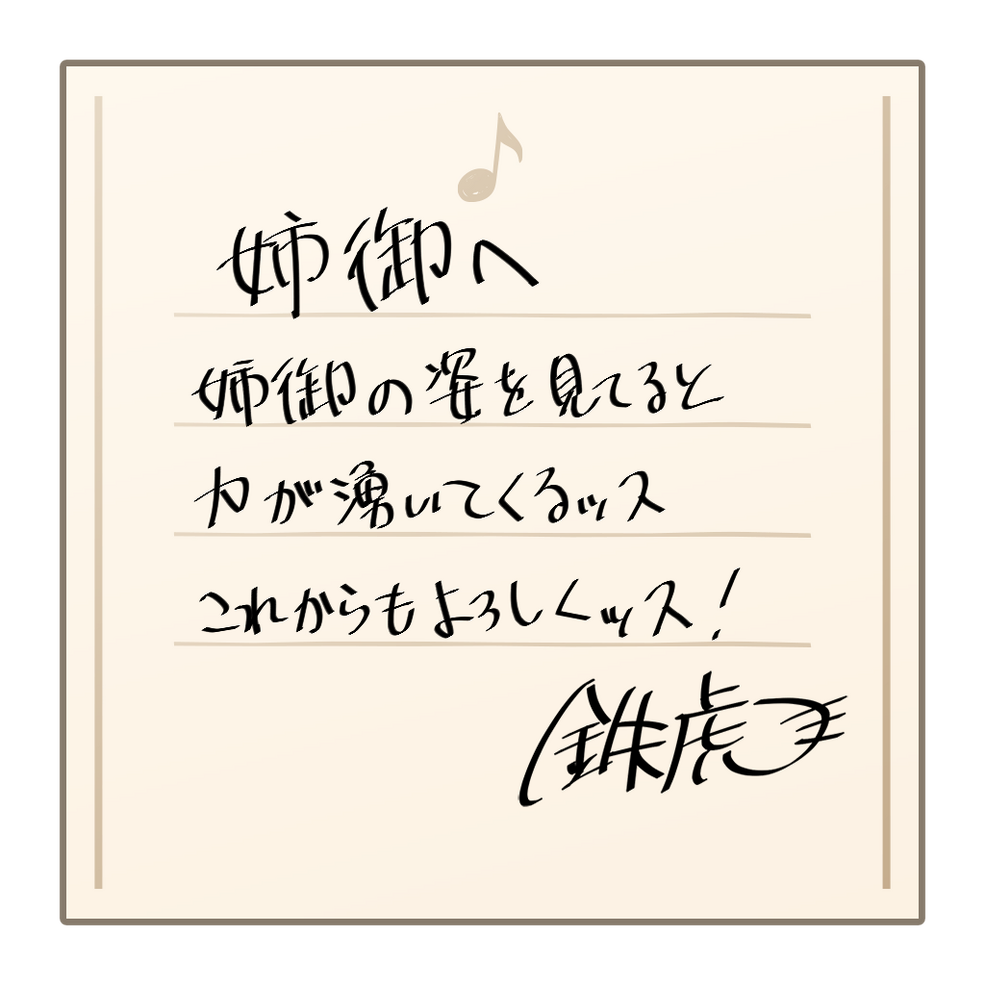 姉御へ
姉御の姿を見てると
力が湧いてくるッス
これからもよろしくッス！
鉄虎